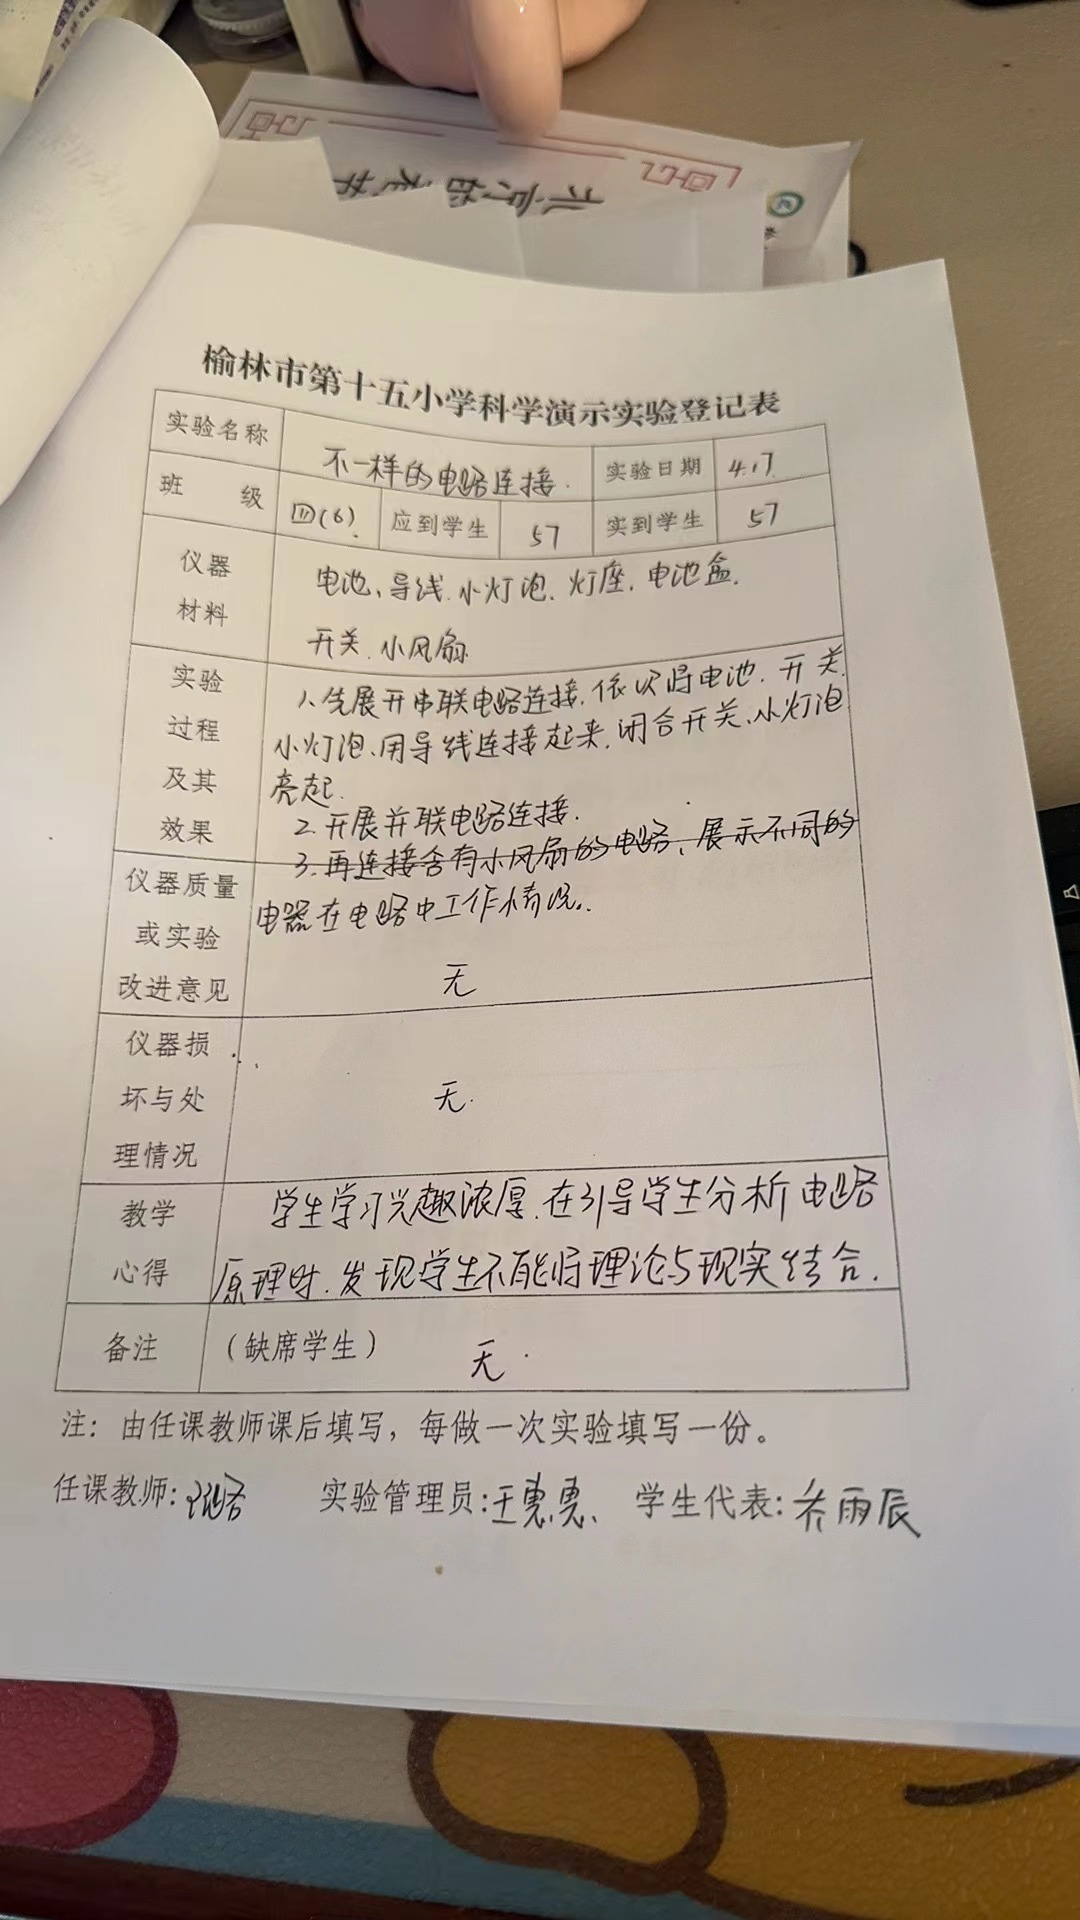 榆林市第十五小学科学演示实验登记表
实验名称 不一样的电路连接. 实验日期 4.17
班 级 四(6). 应到学生 57 实到学生 57
仪器 电池、导线.小灯泡.灯座.电池盒.
材料 开关.小风扇.
实验 1、先展开串联电路连接.依次将电池.开关.
过程 小灯泡、用导线连接起来.闭合开关、小灯泡
及其 亮起.
效果 2.开展并联电路连接.
3.再连接含有小风扇的电路、展示不同的
仪器质量 电器在电路中工作情况..
或实验
改进意见 无
仪器损
坏与处 无.
理情况
教学 学生学习兴趣浓厚.在引导学生分析电路
心得 原理时.发现学生不能将理论与现实结合.
备注 （缺席学生） 无.
注：由任课教师课后填写，每做一次实验填写一份。
任课教师: 实验管理员:王惠惠、 学生代表: 雨辰